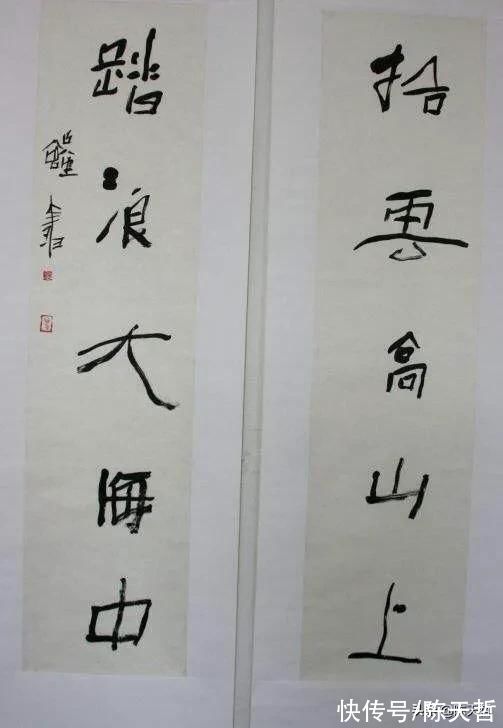 拾雲高山上
踏浪大海中
快传号/陈天哲